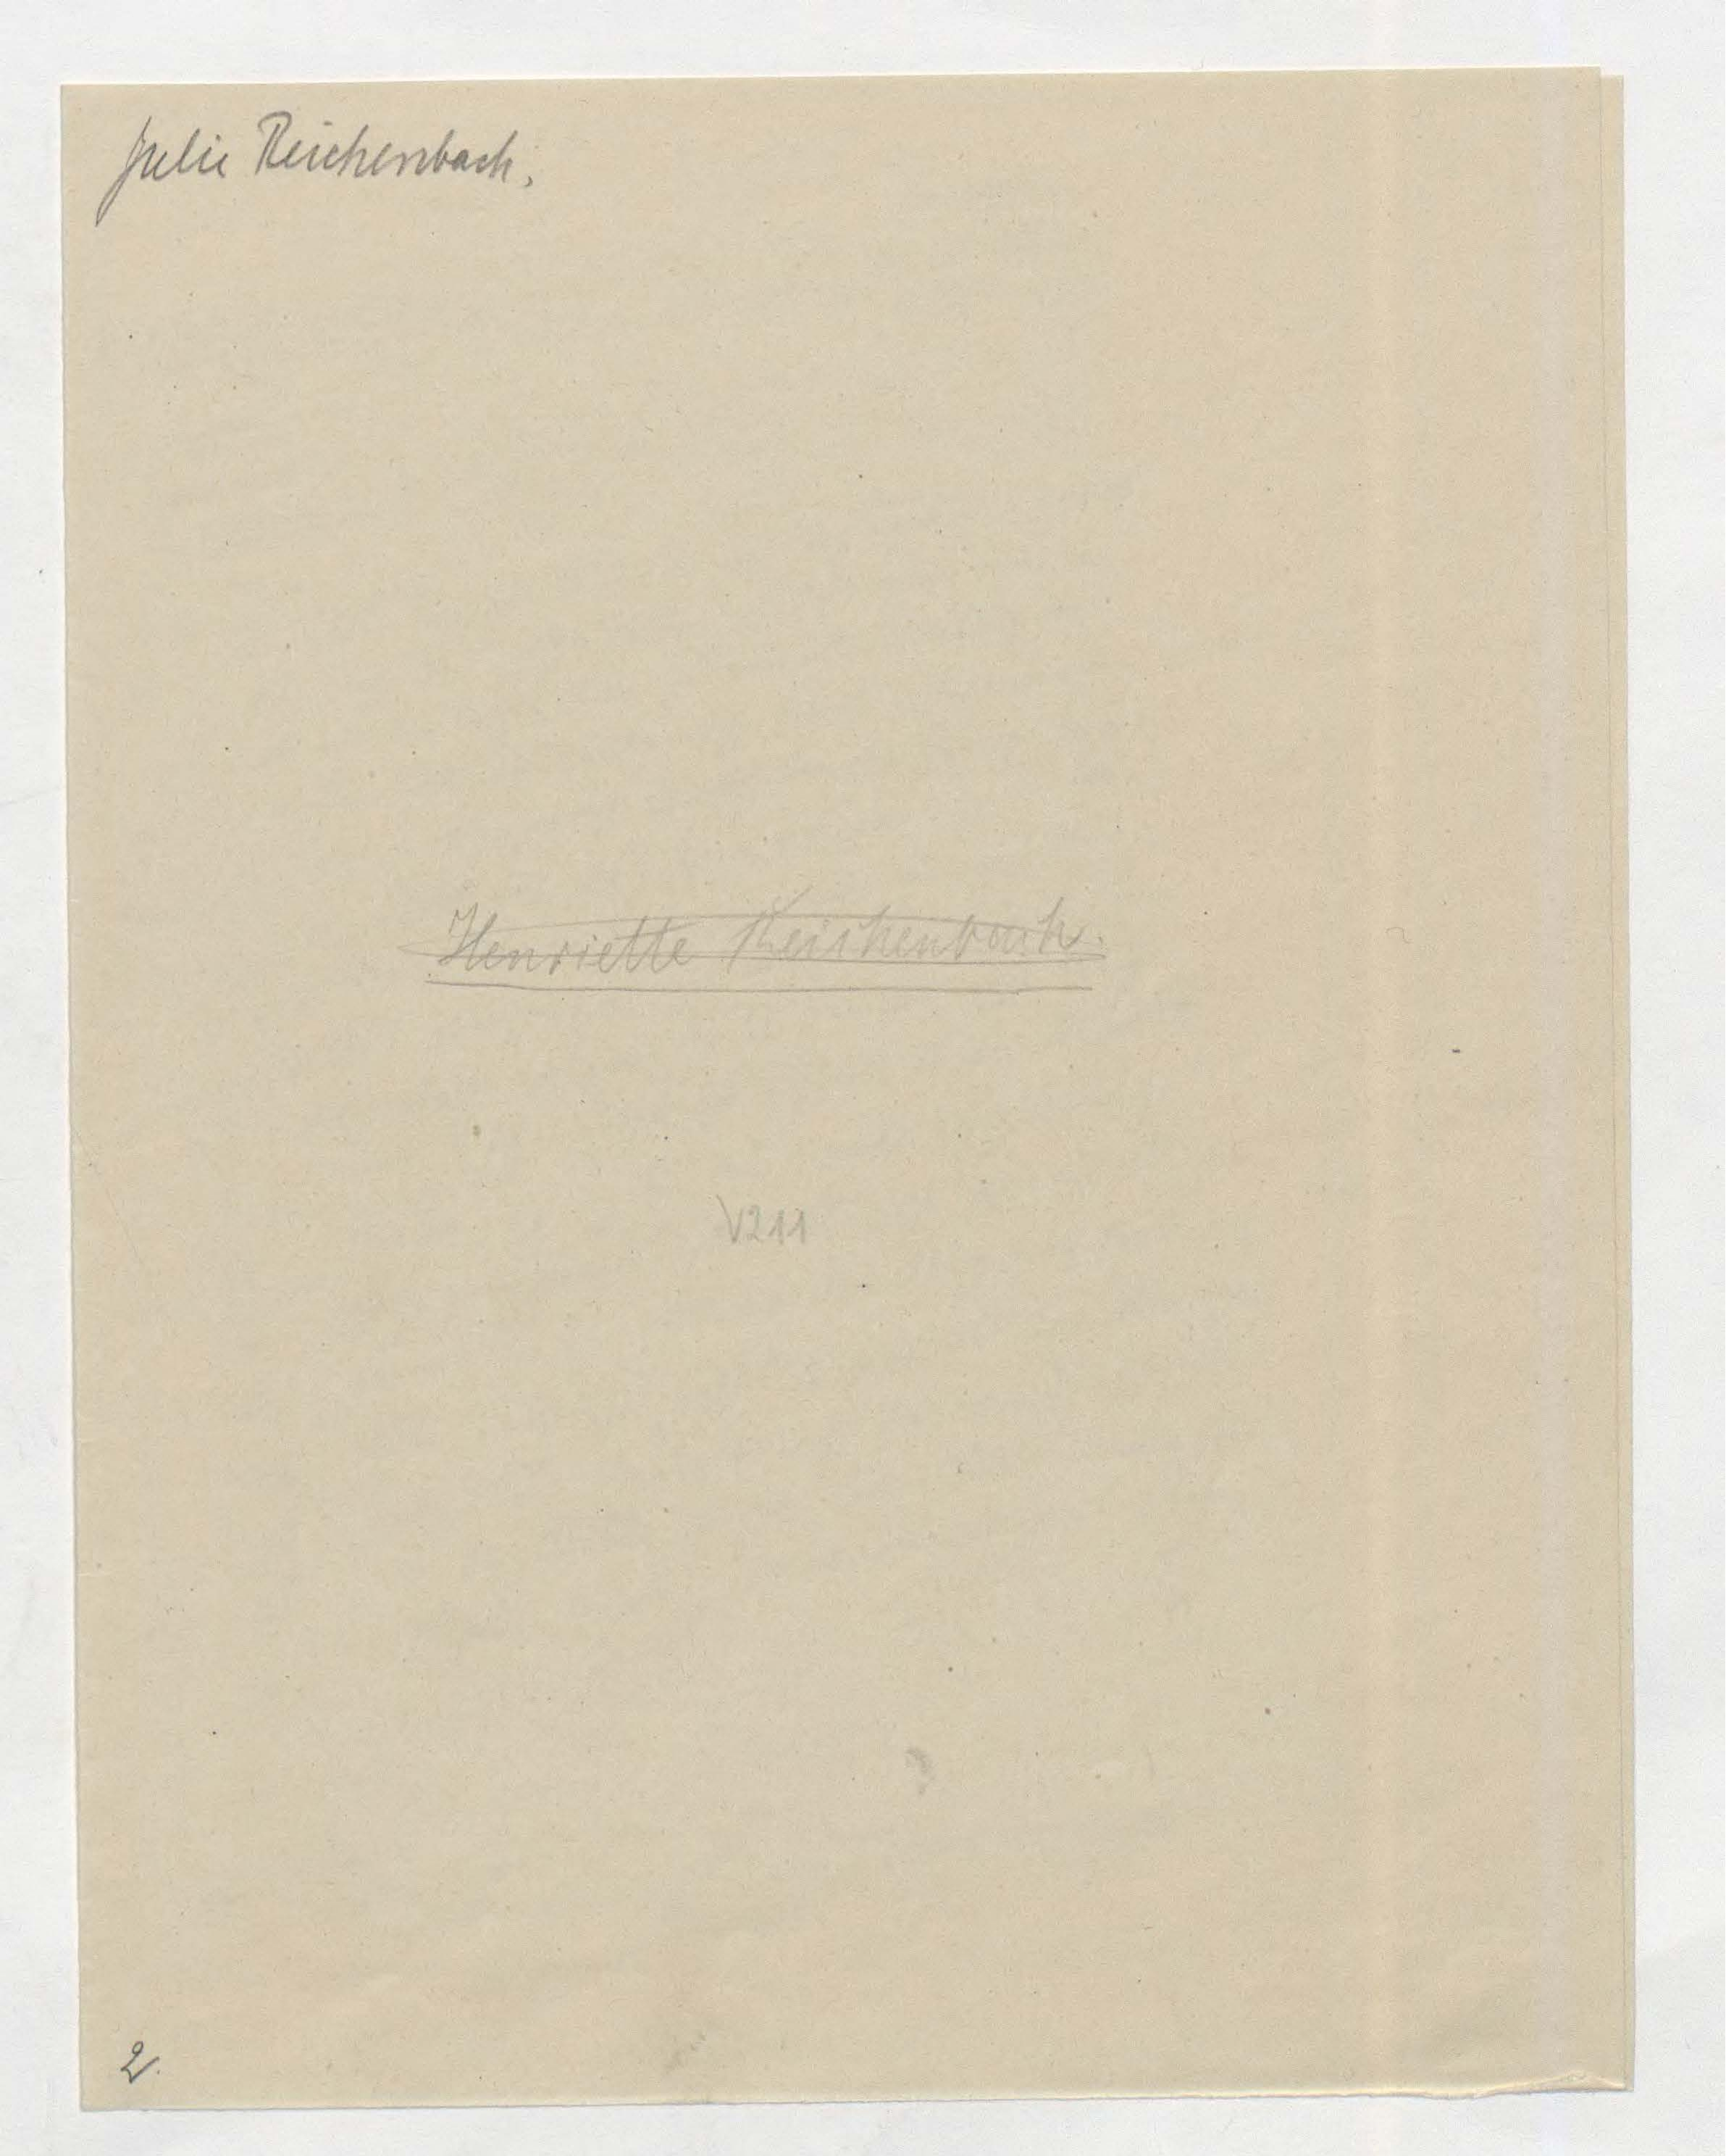 Julie Reichenbach.
Henriette Reichenbach.
V211
2.